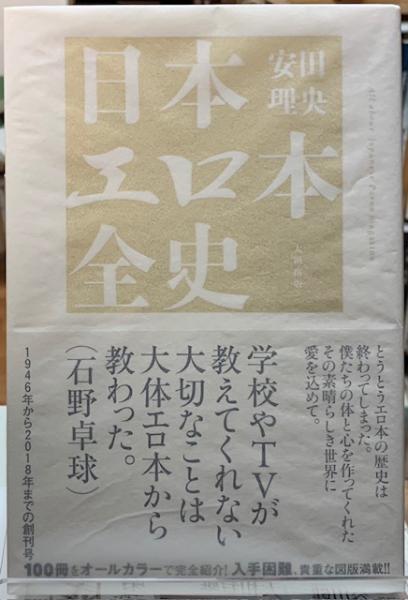 日本
エロ本
全史
安田
理央
All about Japanese Porno Magazine
太田出版
とうとうエロ本の歴史は
終わってしまった。
僕たちの体と心を作ってくれた
その素晴らしき世界に
愛を込めて。
学校やTVが
教えてくれない
大切なことは
大体エロ本から
教わった。
(石野卓球)
1946年から2018年までの創刊号
100冊をオールカラーで完全紹介!入手困難、貴重な図版満載!!